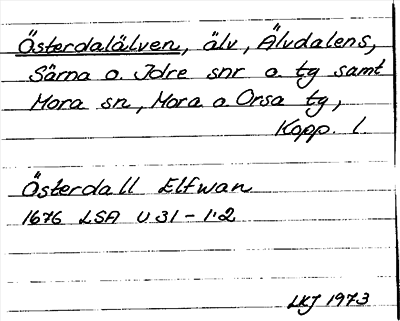 Österdalälven, älv, Älvdalens,
Särna o. Idre snr o. tg samt
Mora sn, Mora o Orsa tg,
Kopp. l.
Österdall Elfwan
1676 LSA U 31 - 1:2
LKJ 1973